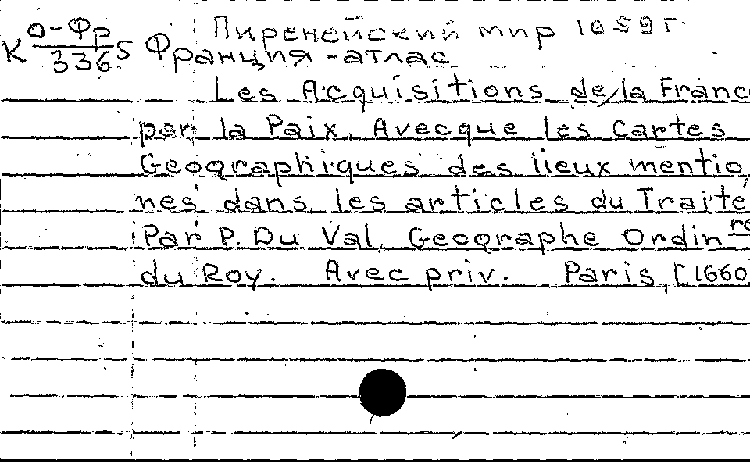 К О-Фр/3365 Пиренейский мир 1659 г.
Франция - атлас
Les Acquisitions de la Franc
par la Paix. Avecque les Cartes
Geographiques des lieux mentio
nes dans les articles du Traité
Par P. Du Val, Geographe Ordin re
du Roy. Avec priv. Paris, [1660